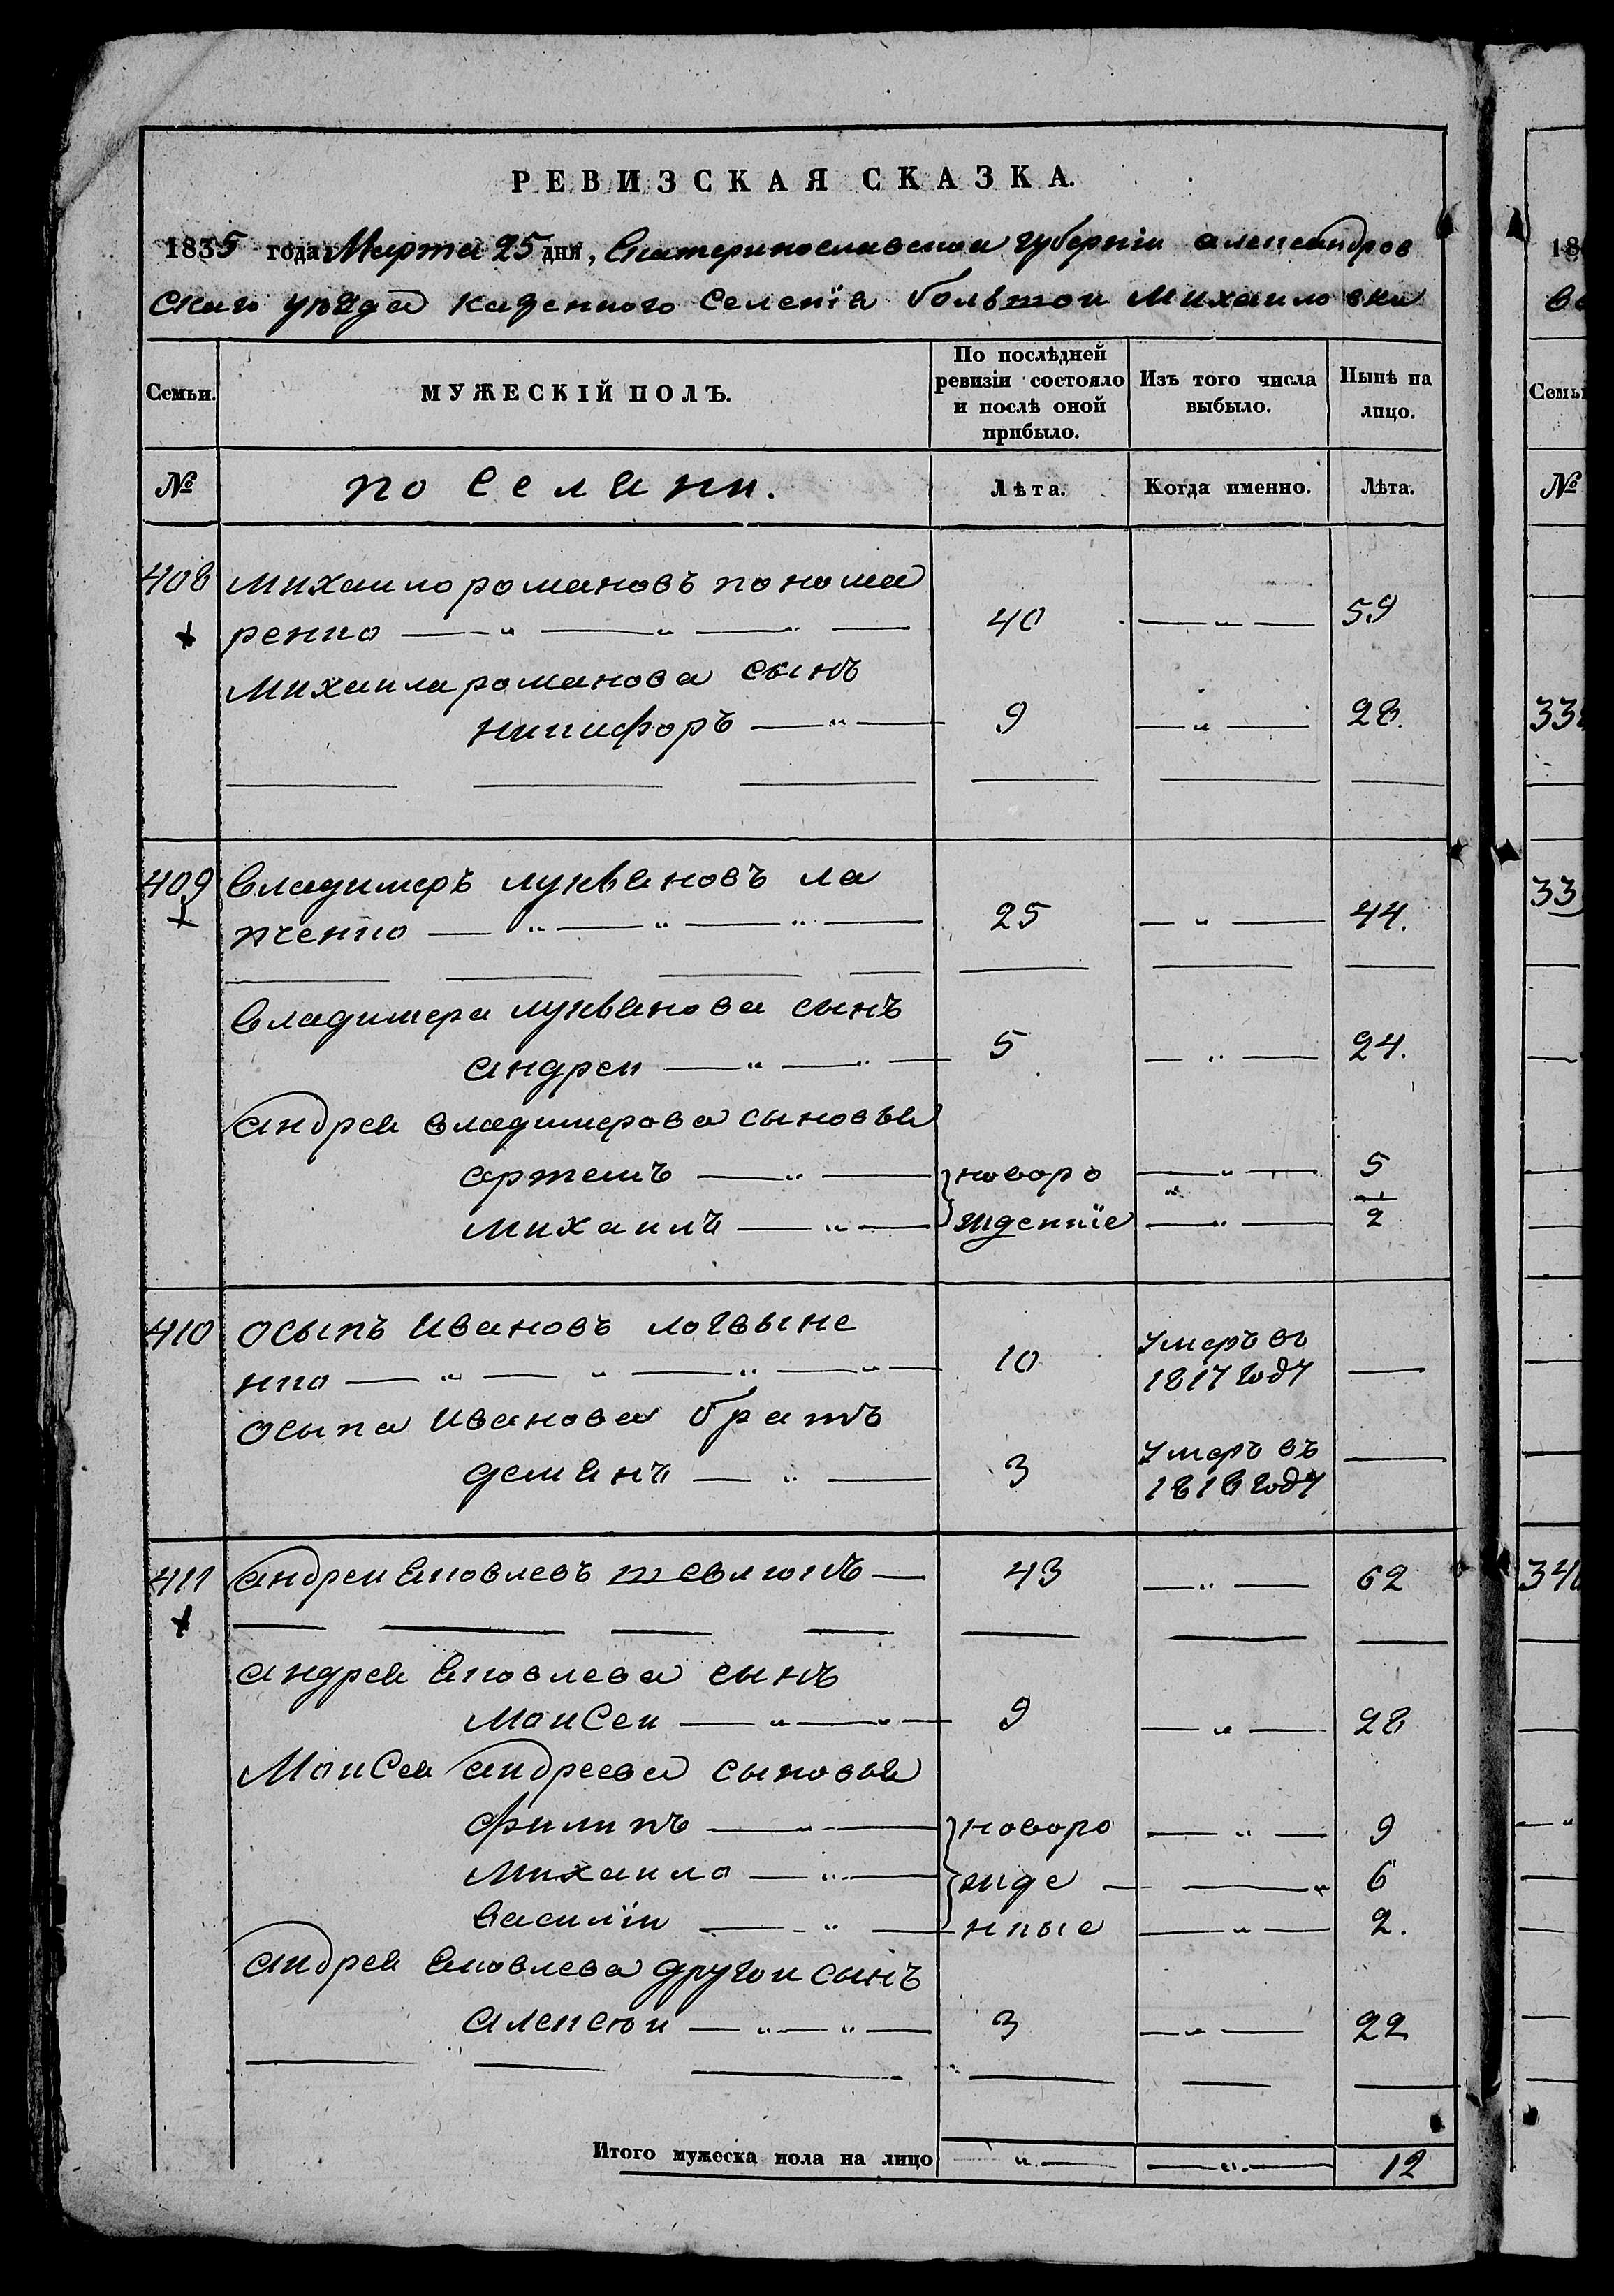 РЕВИЗСКАЯ СКАЗКА.
1835 года Марта 25 дня, Екатеринославской губернiи александров
скаго уѣзда казенного Селенiя большой михаиловки
Семьи. МУЖЕСКІЙ ПОЛЪ. По послѣдней ревизіи состояло и послѣ оной прибыло. Изъ того числа выбыло. Нынѣ на лицо.
№ поселяни. Лѣта. Когда именно. Лѣта.
408 михаило романовъ понома
ренко 40 59
Михаила романова сынъ
никифоръ 9 28.
409 владимеръ лукьяновъ ла
пченко 25 44.
владимера лукьянова сынъ
андреи 5 24.
андрея владимерова сыновья
артемъ новоро 5
михаилъ жденніе 2
410 осыпъ ивановъ логвыне
нко 10 умеръ въ 1817 году
осыпа иванова братъ
демянъ 3 умеръ въ 1818 году
411 андреи яковлевъ шевлюкъ 43 62
андрея яковлева сынъ
Моисеи 9 28
Моисея андреева сыновья
филипъ новоро 9
михаило жде 6
василіи нные 2.
андрея яковлева другои сынъ
алексюи 3 22
Итого мужеска пола на лицо 12
18
Семьи
№
33
33
34